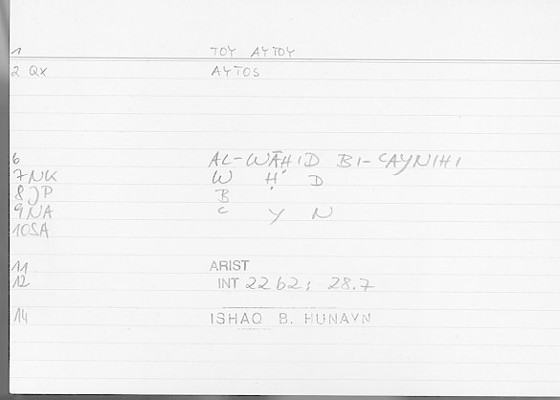 1 TOY AYTOY
2 QX AYTOS
6 AL-WĀḤID BI-ʿAYNIHI
7 NK W Ḥ D
8 JP B
9 NA ʿ Y N
10 SA
11 ARIST
12 INT 22 b2; 28.7
14 ISHAQ B. HUNAYN